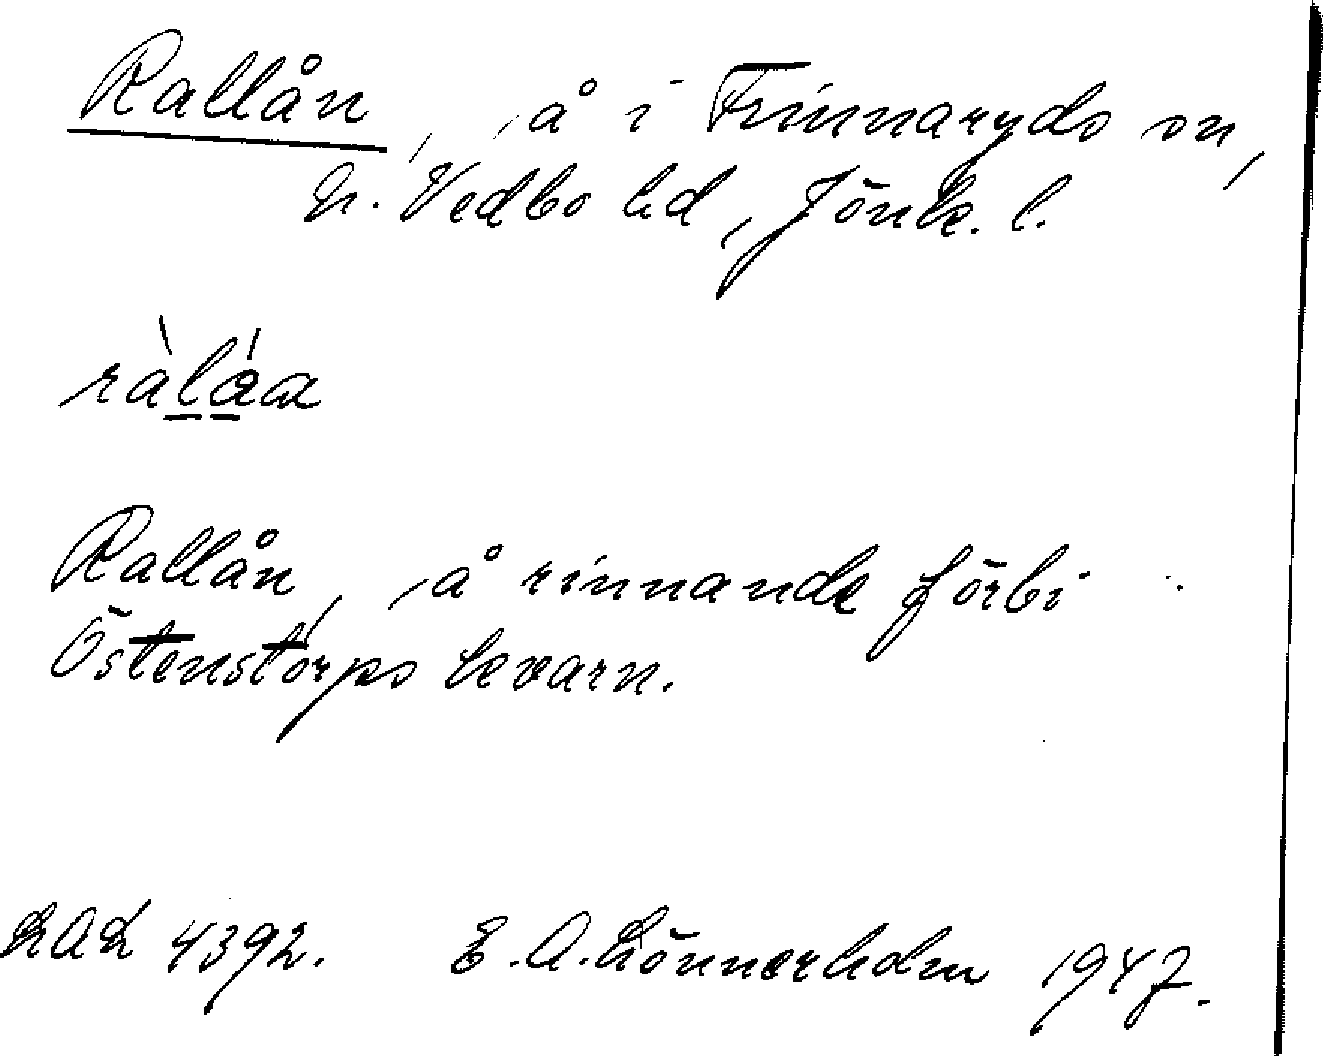 Rallån, å i Frinnaryds sn,
N. Vedbo hd, Jönk. l.
Rallån, å rinnande förbi
Östenstorps kvarn.
LAL 4392. E. A. Lönnerholm 1947.